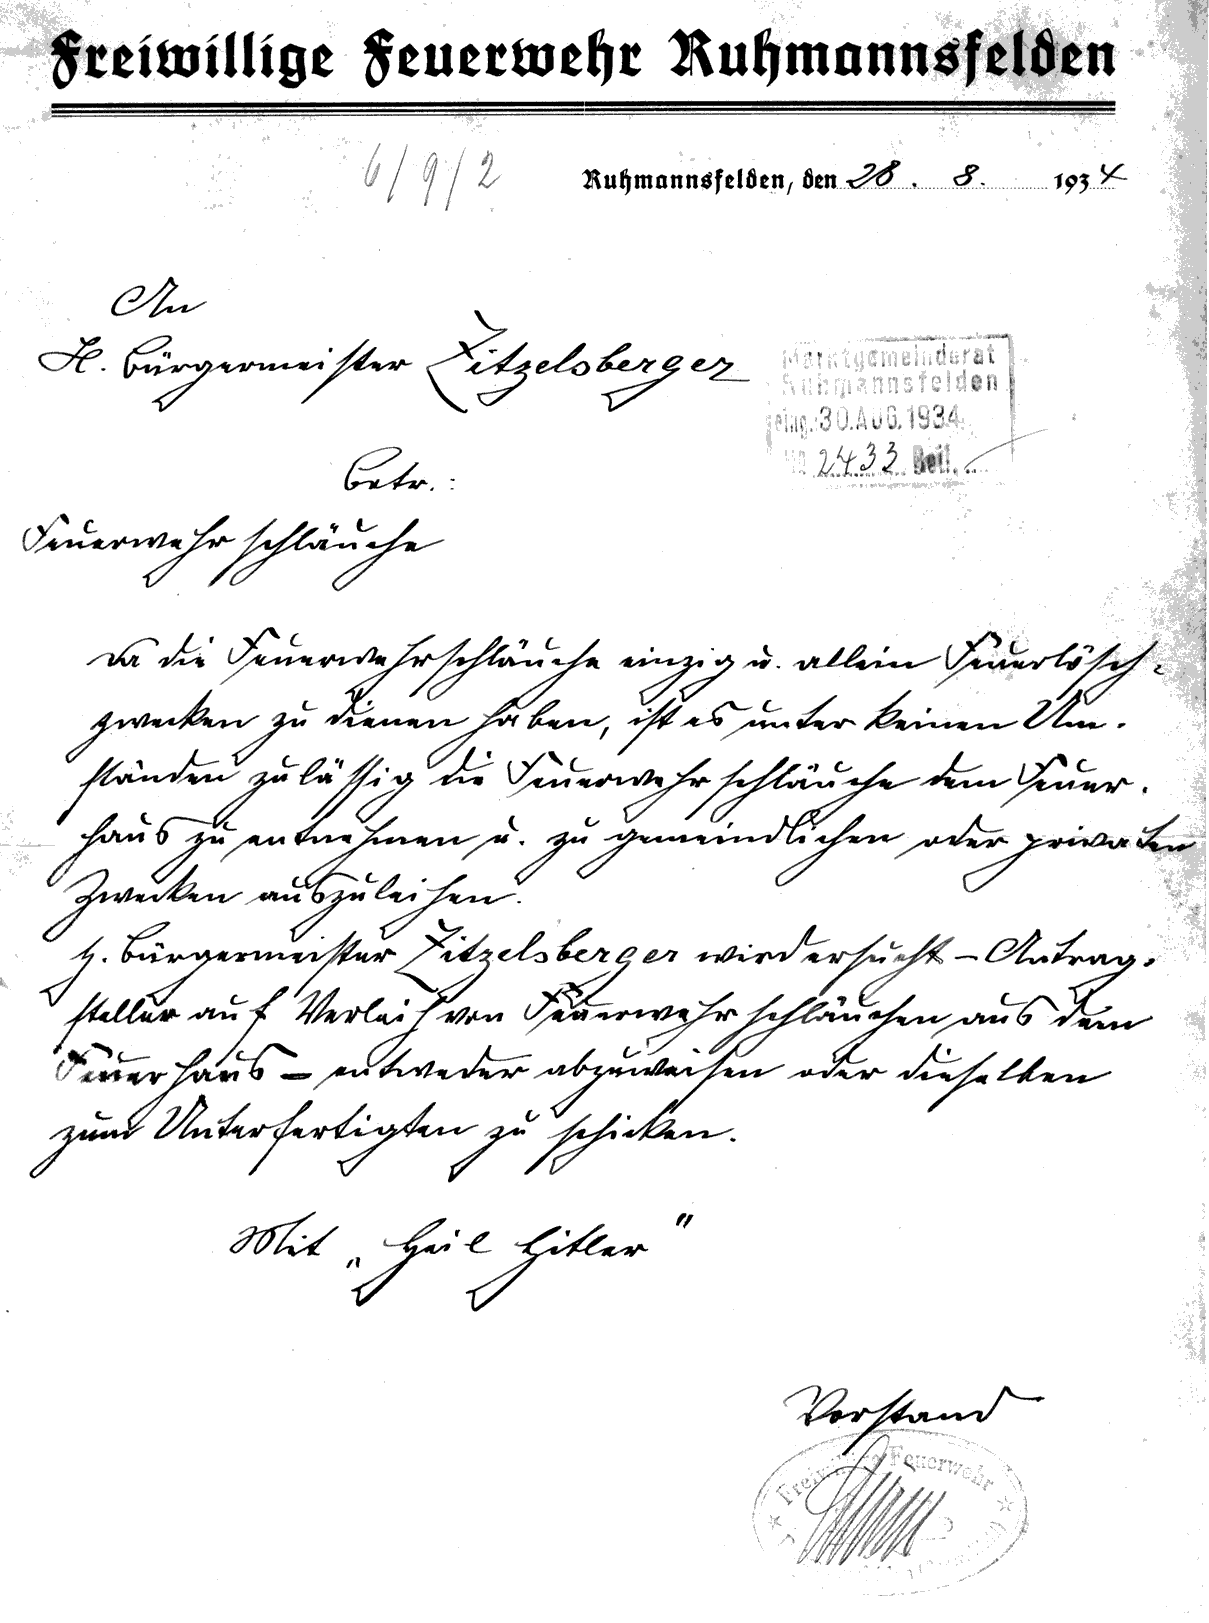 Freiwillige Feuerwehr Ruhmannsfelden
6/9/2
Ruhmannsfelden, den 28. 8. 1934
An
H. Bürgermeister Zitzelsberger
Marktgemeinderat
Ruhmannsfelden
eing. 30. AUG. 1934
No 2433 Beil.
Betr.:
Feuerwehrschläuche
Da die Feuerwehrschläuche einzig u. allein Feuerlösch-
zwecken zu dienen haben, ist es unter keinen Um-
ständen zulässig die Feuerwehrschläuche dem Feuer-
haus zu entnehmen u. zu gemeindlichen oder privaten
Zwecken auszuleihen.
H. Bürgermeister Zitzelsberger wird ersucht – Antrag-
steller auf Verleih von Feuerwehrschläuchen aus dem
Feuerhaus – entweder abzuweisen oder dieselben
zum Unterfertigten zu schicken.
Mit „Heil Hitler"
Vorstand
Freiwillige Feuerwehr